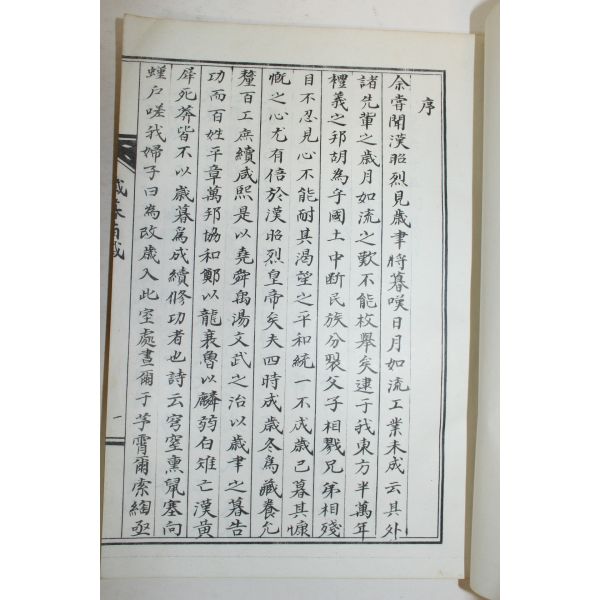 序
余嘗聞漢昭烈見歲聿將暮嘆日月如流工業未成云其外
諸先輩之歲月如流之歎不能枚擧矣逮于我東方半萬年
禮義之邦胡為乎國土中断民族分裂父子相戮兄弟相殘
目不忍見心不能耐其渴望之平和統一不成歲已暮其慷
慨之心尤有倍於漢昭烈皇帝矣夫四時成歲冬為藏養允
釐百工庶績咸熙是以堯舜禹湯文武之治以歲聿之暮告
功而百姓平章萬邦協和鄭以龍衰魯以麟弱白雉亡漢黃
犀死莽皆不以歲暮爲成績修功者也詩云穹窒熏鼠塞向
墐户嗟我婦子曰為改歲入此室處晝爾于茅霄爾索綯亟
歲暮百
一